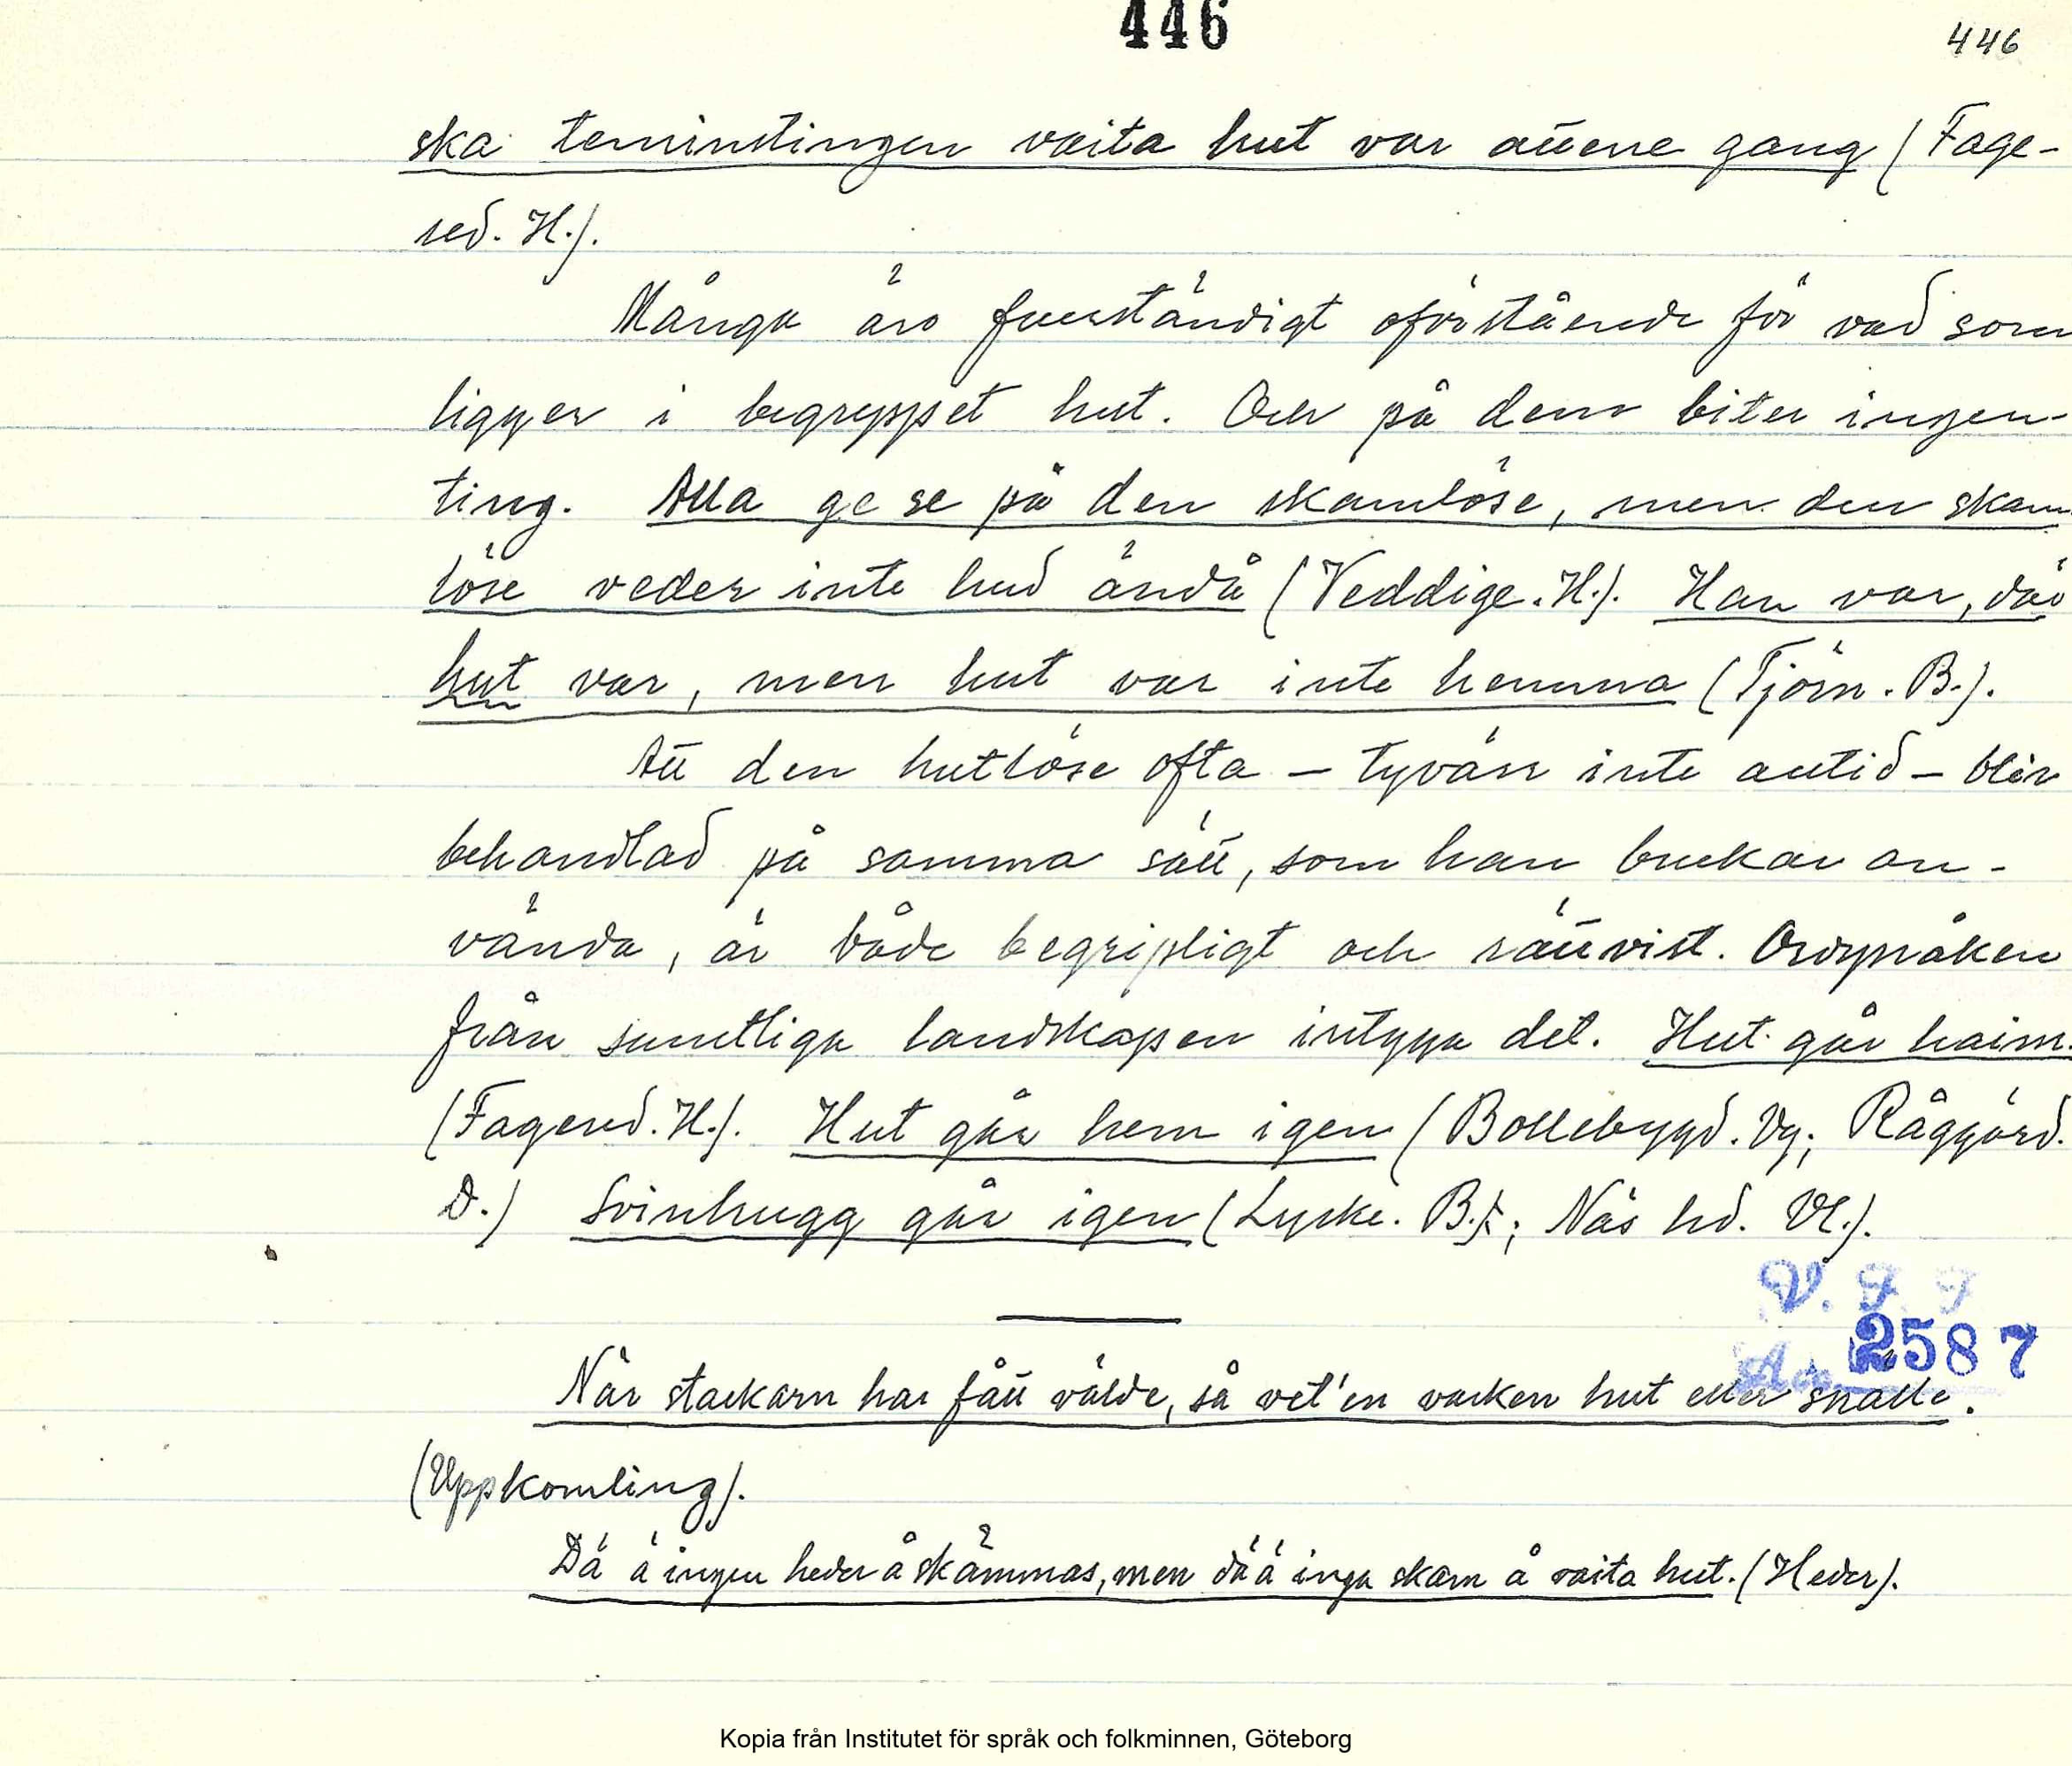 446
446
ska teminstingen vaita hut var auene gang (Fage-
red. H.).
Många äro fullständigt oförstående för vad som
ligger i begreppet hut. Och på dem biter ingen-
ting. Alla ge se på den skamlöse, men den skam-
löse veder inte hud ändå (Veddige. H.). Han var, där
hut var, men hut var inte hemma (Tjörn. B.).
Att den hutlöse ofta – tyvärr inte alltid – blir
behandlad på samma sätt, som han brukar an-
vända, är både begripligt och rättvist. Ordspråken
från samtliga landskapen intyga det. Hut går haim.
(Fagered. H.). Hut går hem igen (Bollebygd. Vg; Råggärd.
D.) Svinhugg går igen (Lycke. B.; Näs hd. Vl.).
V. F. F
Acc. 2587
När stackarn har fått välde, så vet'en varken hut eller skalle.
(Uppkomling).
Dä ä ingen heder å skämmas, men dä ä inga skam å vaita hut. (Heder).
Kopia från Institutet för språk och folkminnen, Göteborg